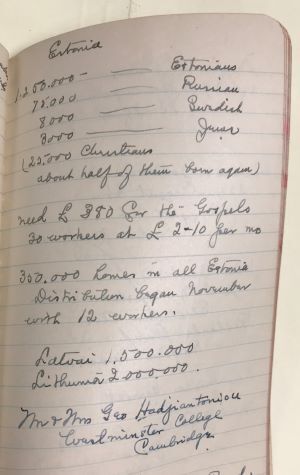 Estonia
1.250.000 - — Estonians
75.000 — Russian
8000 — Swedish
3000 — Jews
(25,000 Christians
about half of them born again)
need £ 380 for the Gospels
30 workers at £ 2-10 per mo
350.000 homes in all Estonia
Distribution began November
with 12 workers.
Latvai 1.500.000
Lithuma 2000.000.
Mr & Mrs Geo Hadjiantoniou
Westminster College
Cambridge